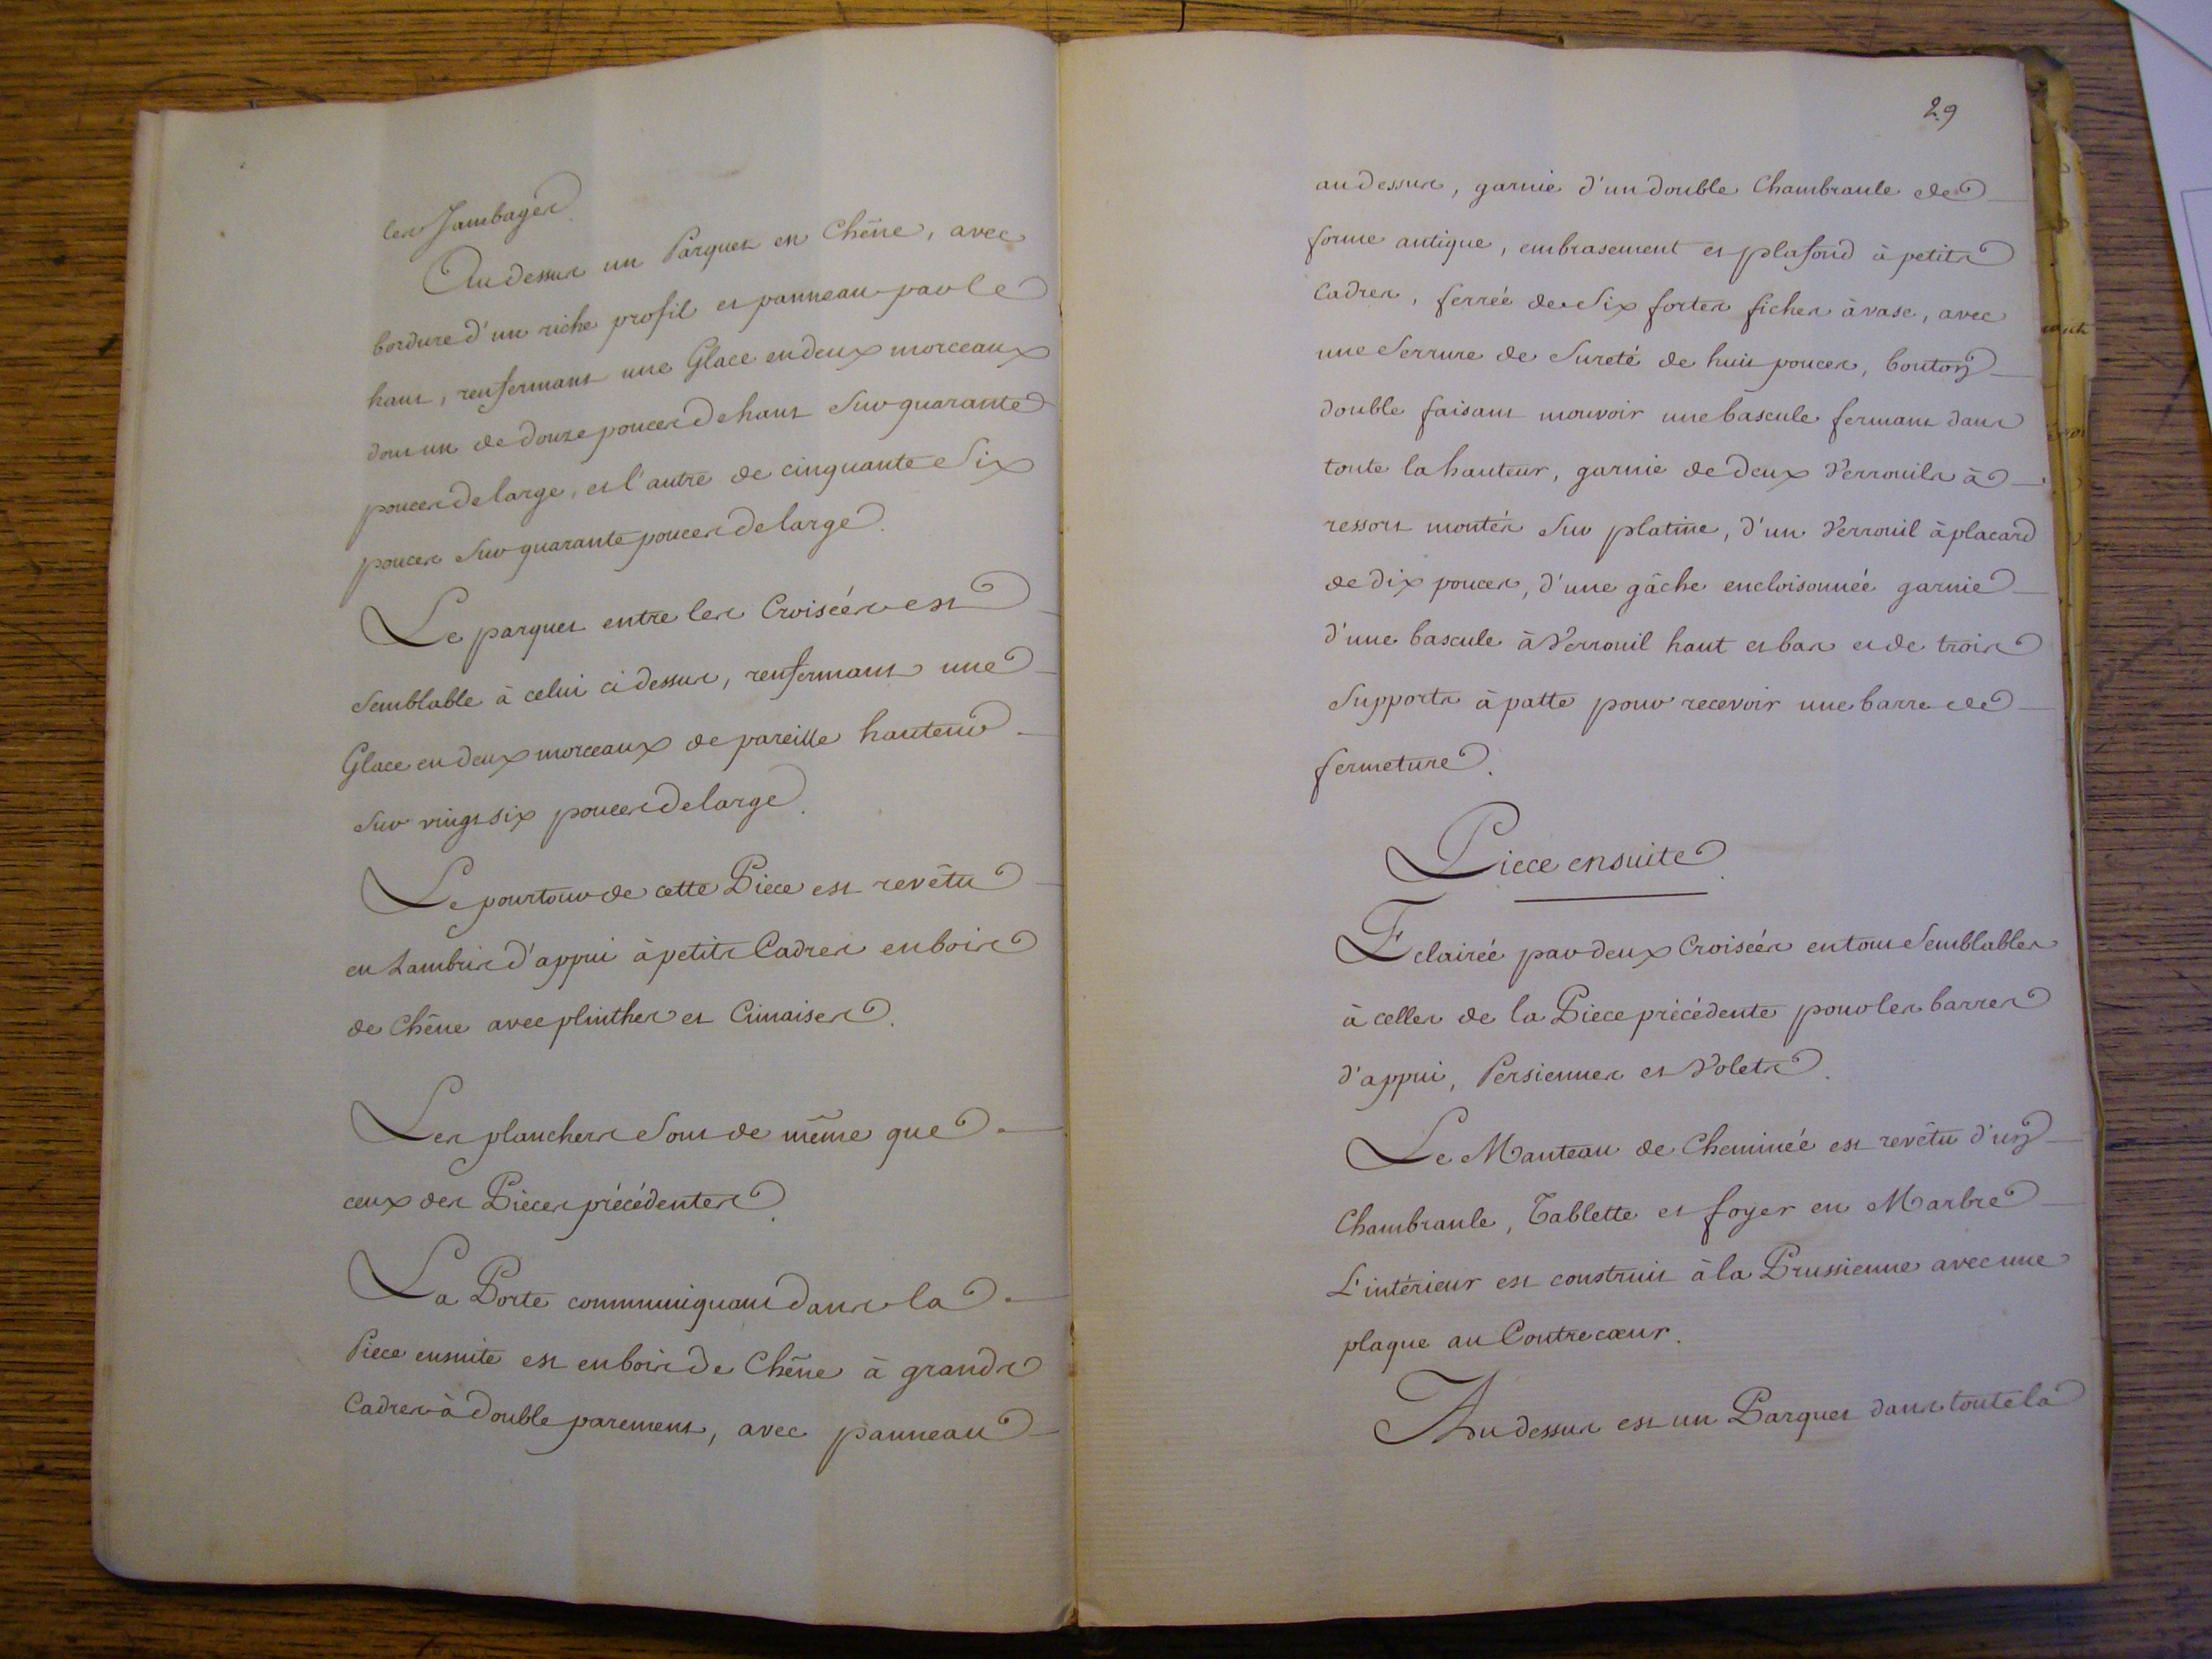 les Jambages.
Au dessus un Parquet en Chêne, avec
bordure d'un riche profil et panneau par le
haut, renfermant une Glace en deux morceaux
dont un de douze pouces de haut Sur quarante
pouces de large, et l'autre de cinquante Six
pouces Sur quarante pouces de large.
Le parquet entre les Croisées est
Semblable à celui ci dessus, renfermant une
Glace en deux morceaux de pareille hauteur
Sur vingt six pouces de large.
Le pourtour de cette Piece est revêtu
en Lambris d'appui à petits Cadres en bois
de Chêne avec plinthes et Cimaises.
Les planchers Sont de même que
ceux des Pieces précédentes.
La Porte communiquant dans la
Piece ensuite est en bois de Chêne à grands
Cadres à double parement, avec panneau
29
au dessus, garnie d'un double Chambranle de
forme antique, embrasement et plafond à petits
Cadres, ferrée de Six fortes fiches à vase, avec
une Serrure de Sureté de huit pouces, bouton
double faisant mouvoir une bascule fermant dans
toute la hauteur, garnie de deux Verrouils à
ressort montés Sur platine, d'un Verrouil à placard
de dix pouces, d'une gâche encloisonnée garnie
d'une bascule à Verrouil haut et bas et de trois
Supports à patte pour recevoir une barre de
fermeture.
Piece ensuite.
Eclairée par deux Croisées en tout Semblables
à celles de la Piece précédente pour les barres
d'appui, Persiennes et Volets.
Le Manteau de Cheminée est revêtu d'un
Chambranle, Tablette et foyer en Marbre
L'intérieur est construit à la Prussienne avec une
plaque au Contrecœur.
Au dessus est un Parquet dans toute la